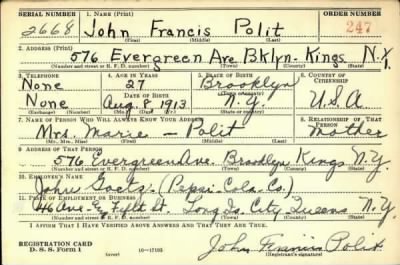 SERIAL NUMBER 1. NAME (Print) ORDER NUMBER
2668 John Francis Polit 247
(First) (Middle) (Last)
2. ADDRESS (Print)
576 Evergreen Ave Bklyn- Kings N.Y.
(Number and street or R. F. D. number) (Town) (County) (State)
3. TELEPHONE 4. AGE IN YEARS 5. PLACE OF BIRTH 6. COUNTRY OF CITIZENSHIP
None 27 Brooklyn
DATE OF BIRTH (Town or county)
None Aug. 8 1913 N.Y. U.S.A
(Exchange) (Number) (Mo.) (Day) (Yr.) (State or country)
7. NAME OF PERSON WHO WILL ALWAYS KNOW YOUR ADDRESS 8. RELATIONSHIP OF THAT PERSON
Mrs. Marie - Polit Mother
(Mr., Mrs., Miss) (First) (Middle) (Last)
9. ADDRESS OF THAT PERSON
576 Evergreen Ave. Brooklyn Kings N.Y.
(Number and street or R. F. D. number) (Town) (County) (State)
10. EMPLOYER'S NAME
John Goetz. (Pepsi-Cola Co.)
11. PLACE OF EMPLOYMENT OR BUSINESS
46 Ave. & Fifth St. Long Is. City Queens N.Y.
(Number and street or R. F. D. number) (Town) (County) (State)
I AFFIRM THAT I HAVE VERIFIED ABOVE ANSWERS AND THAT THEY ARE TRUE.
REGISTRATION CARD
D. S. S. Form 1 (over) 16-17105 John Francis Polit
(Registrant's signature)